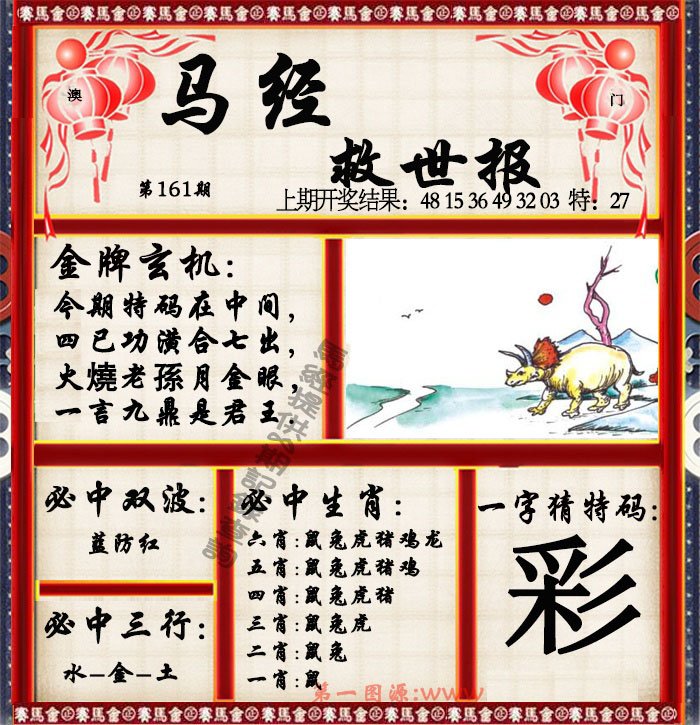 賽馬會㊣賽馬會㊣賽馬會㊣賽馬會㊣賽馬會㊣賽馬會㊣賽馬會㊣賽馬會
澳
门
马经
救世报
第161期
上期开奖结果：48 15 36 49 32 03 特：27
金牌玄机：
今期特码在中间，
四已功潢合七出，
火燒老孫月金眼，
一言九鼎是君王.
必中双波：
蓝防红
必中三行：
水–金–土
必中生肖：
六肖:鼠兔虎猪鸡龙
五肖:鼠兔虎猪鸡
四肖:鼠兔虎猪
三肖:鼠兔虎
二肖:鼠兔
一肖:鼠
一字猜特码：
彩
第一图源:www